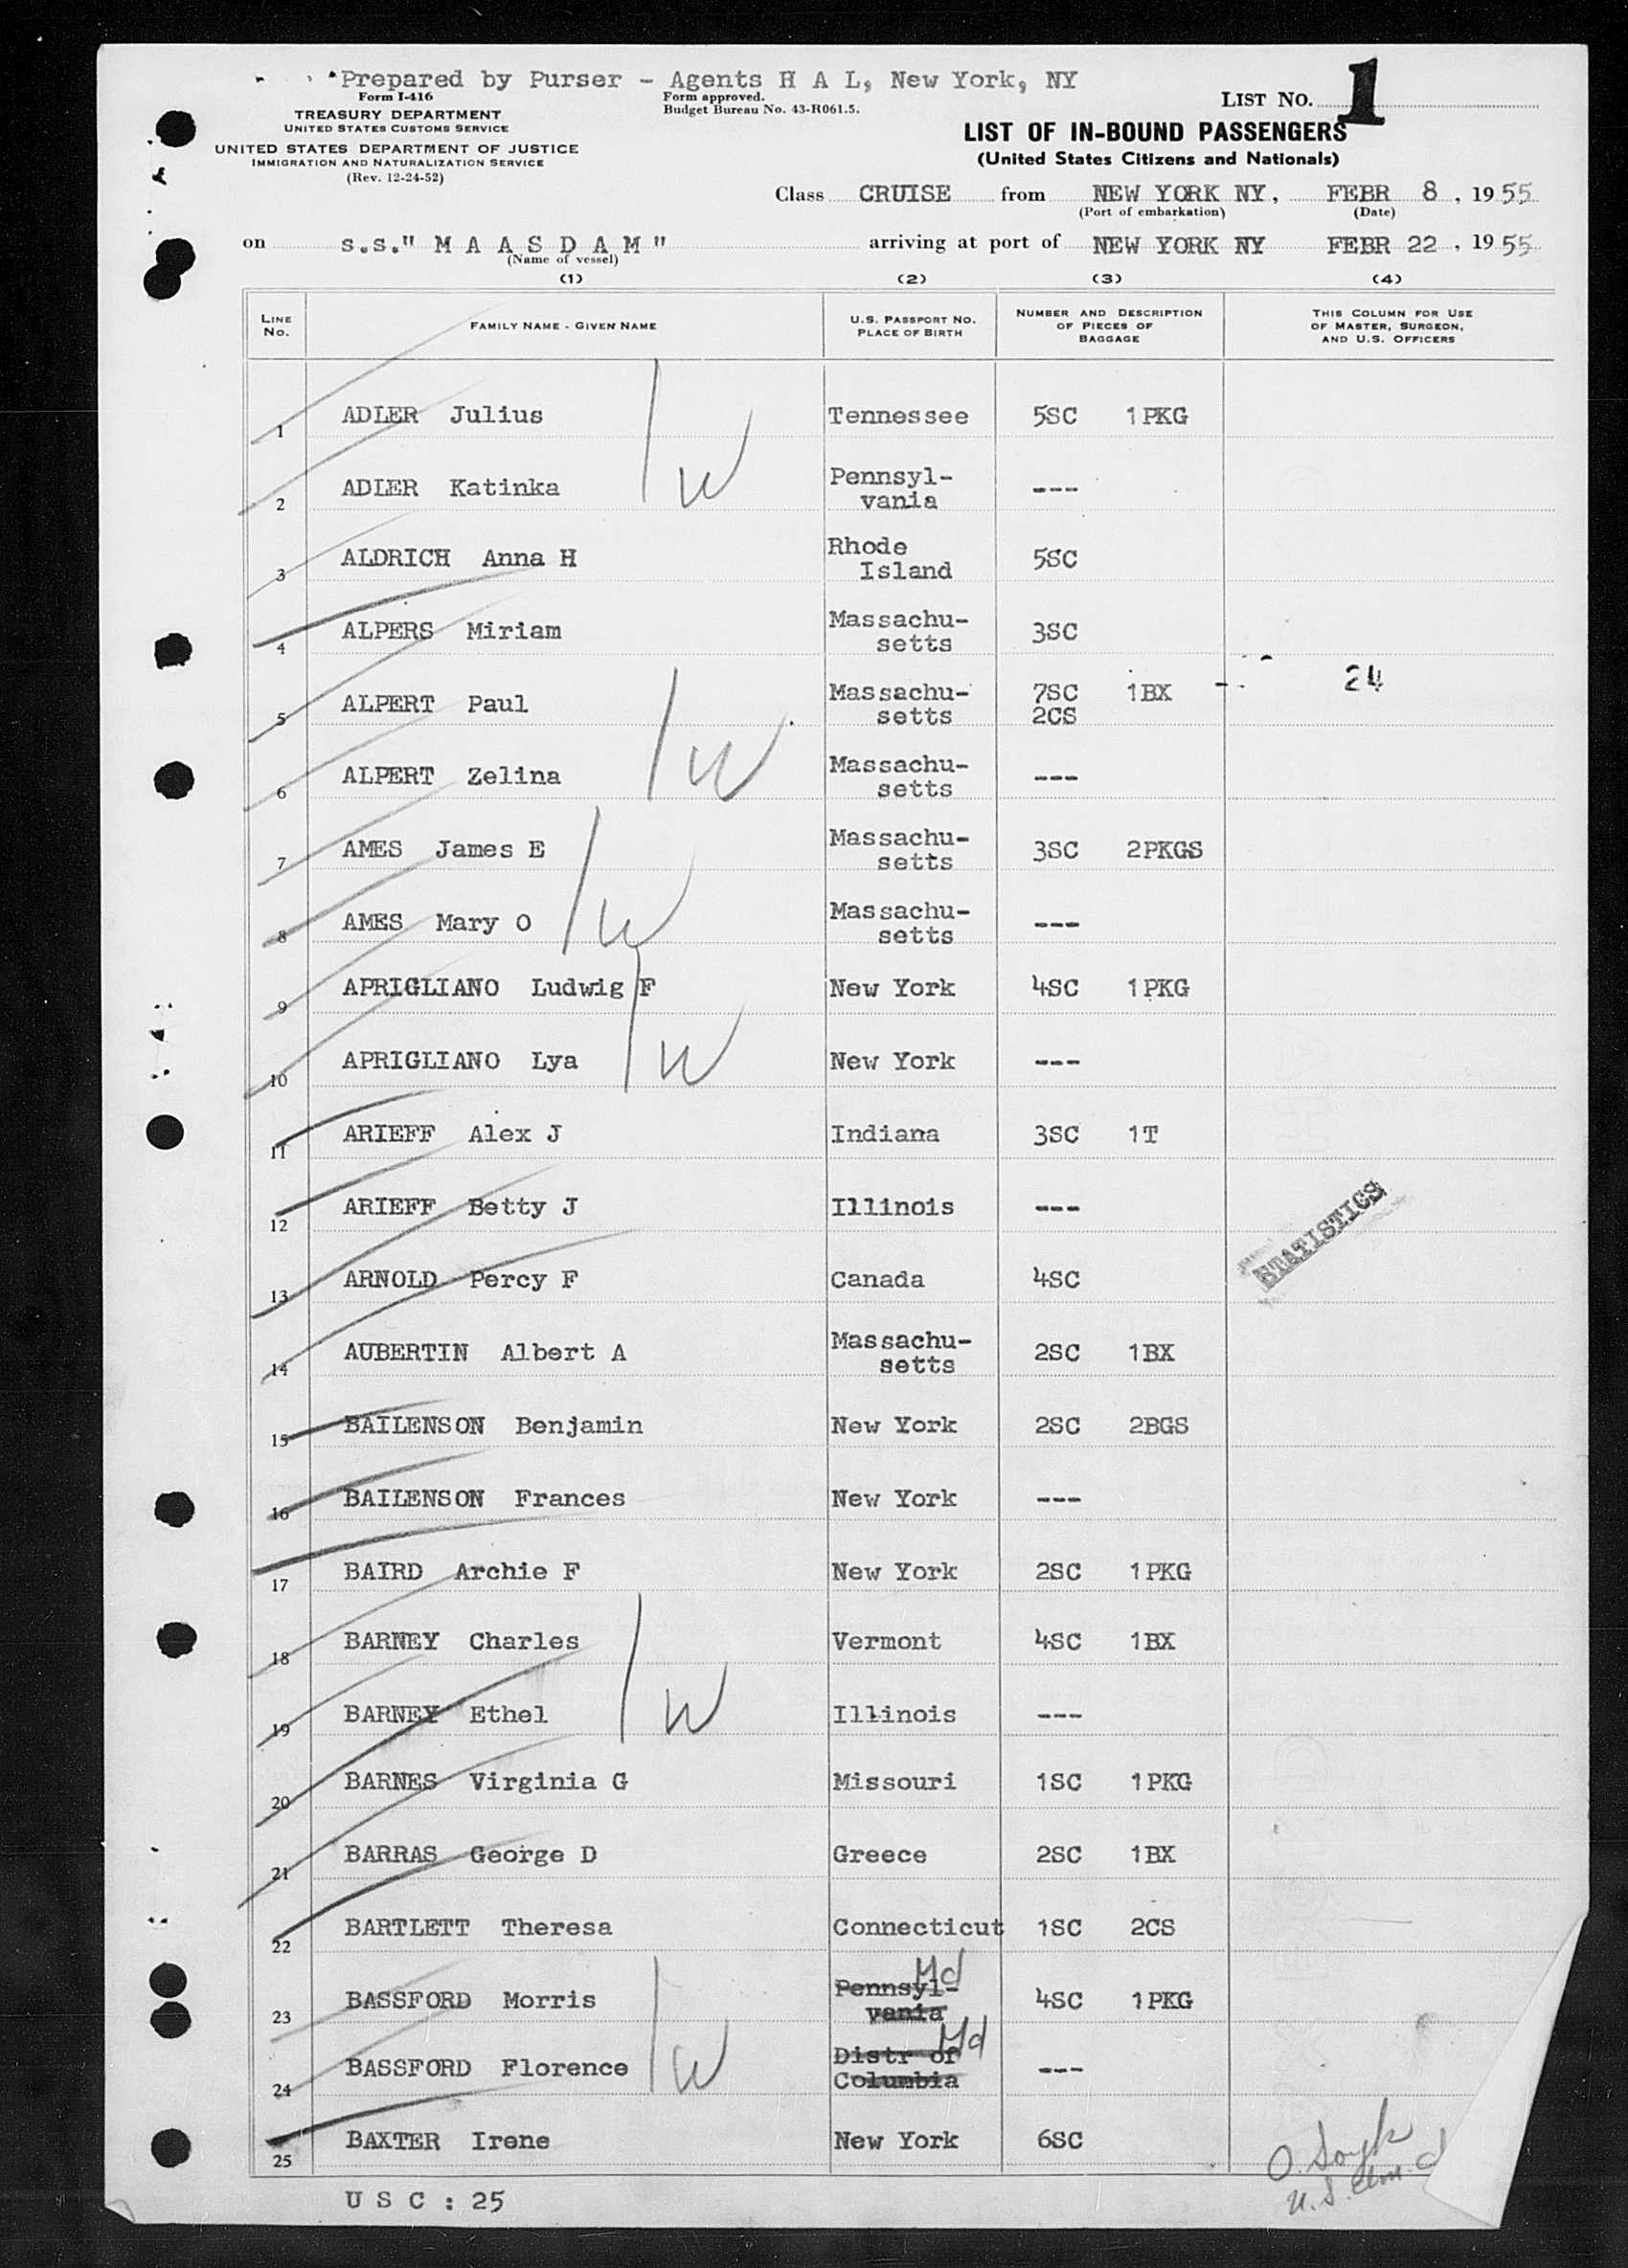 Prepared by Purser - Agents H A L, New York, NY
Form I-416
TREASURY DEPARTMENT
UNITED STATES CUSTOMS SERVICE
UNITED STATES DEPARTMENT OF JUSTICE
IMMIGRATION AND NATURALIZATION SERVICE
(Rev. 12-24-52)
Form approved.
Budget Bureau No. 43-R061.5.
LIST NO. 1
LIST OF IN-BOUND PASSENGERS
(United States Citizens and Nationals)
Class CRUISE from NEW YORK NY, FEBR 8, 1955
(Port of embarkation) (Date)
on s.s." M A A S D A M " arriving at port of NEW YORK NY FEBR 22, 1955
(Name of vessel)
(1) (2) (3) (4)
LINE NO. FAMILY NAME - GIVEN NAME U.S. PASSPORT NO. PLACE OF BIRTH NUMBER AND DESCRIPTION OF PIECES OF BAGGAGE THIS COLUMN FOR USE OF MASTER, SURGEON, AND U.S. OFFICERS
1 ADLER Julius Tennessee 5SC 1PKG
W
2 ADLER Katinka Pennsyl-vania ---
3 ALDRICH Anna H Rhode Island 5SC
4 ALPERS Miriam Massachu-setts 3SC
5 ALPERT Paul Massachu-setts 7SC 1BX 2CS 24
W
6 ALPERT Zelina Massachu-setts ---
7 AMES James E Massachu-setts 3SC 2PKGS
8 AMES Mary O W Massachu-setts ---
9 APRIGLIANO Ludwig F New York 4SC 1PKG
10 APRIGLIANO Lya W New York ---
11 ARIEFF Alex J Indiana 3SC 1T
12 ARIEFF Betty J Illinois ---
STATISTICS
13 ARNOLD Percy F Canada 4SC
14 AUBERTIN Albert A Massachu-setts 2SC 1BX
15 BAILENSON Benjamin New York 2SC 2BGS
16 BAILENSON Frances New York ---
17 BAIRD Archie F New York 2SC 1PKG
18 BARNEY Charles Vermont 4SC 1BX
19 BARNEY Ethel W Illinois ---
20 BARNES Virginia G Missouri 1SC 1PKG
21 BARRAS George D Greece 2SC 1BX
22 BARTLETT Theresa Connecticut 1SC 2CS
23 BASSFORD Morris Pennsyl-vania Md 4SC 1PKG
24 BASSFORD Florence W Distr of Columbia Md ---
25 BAXTER Irene New York 6SC
U S C : 25
U.S.